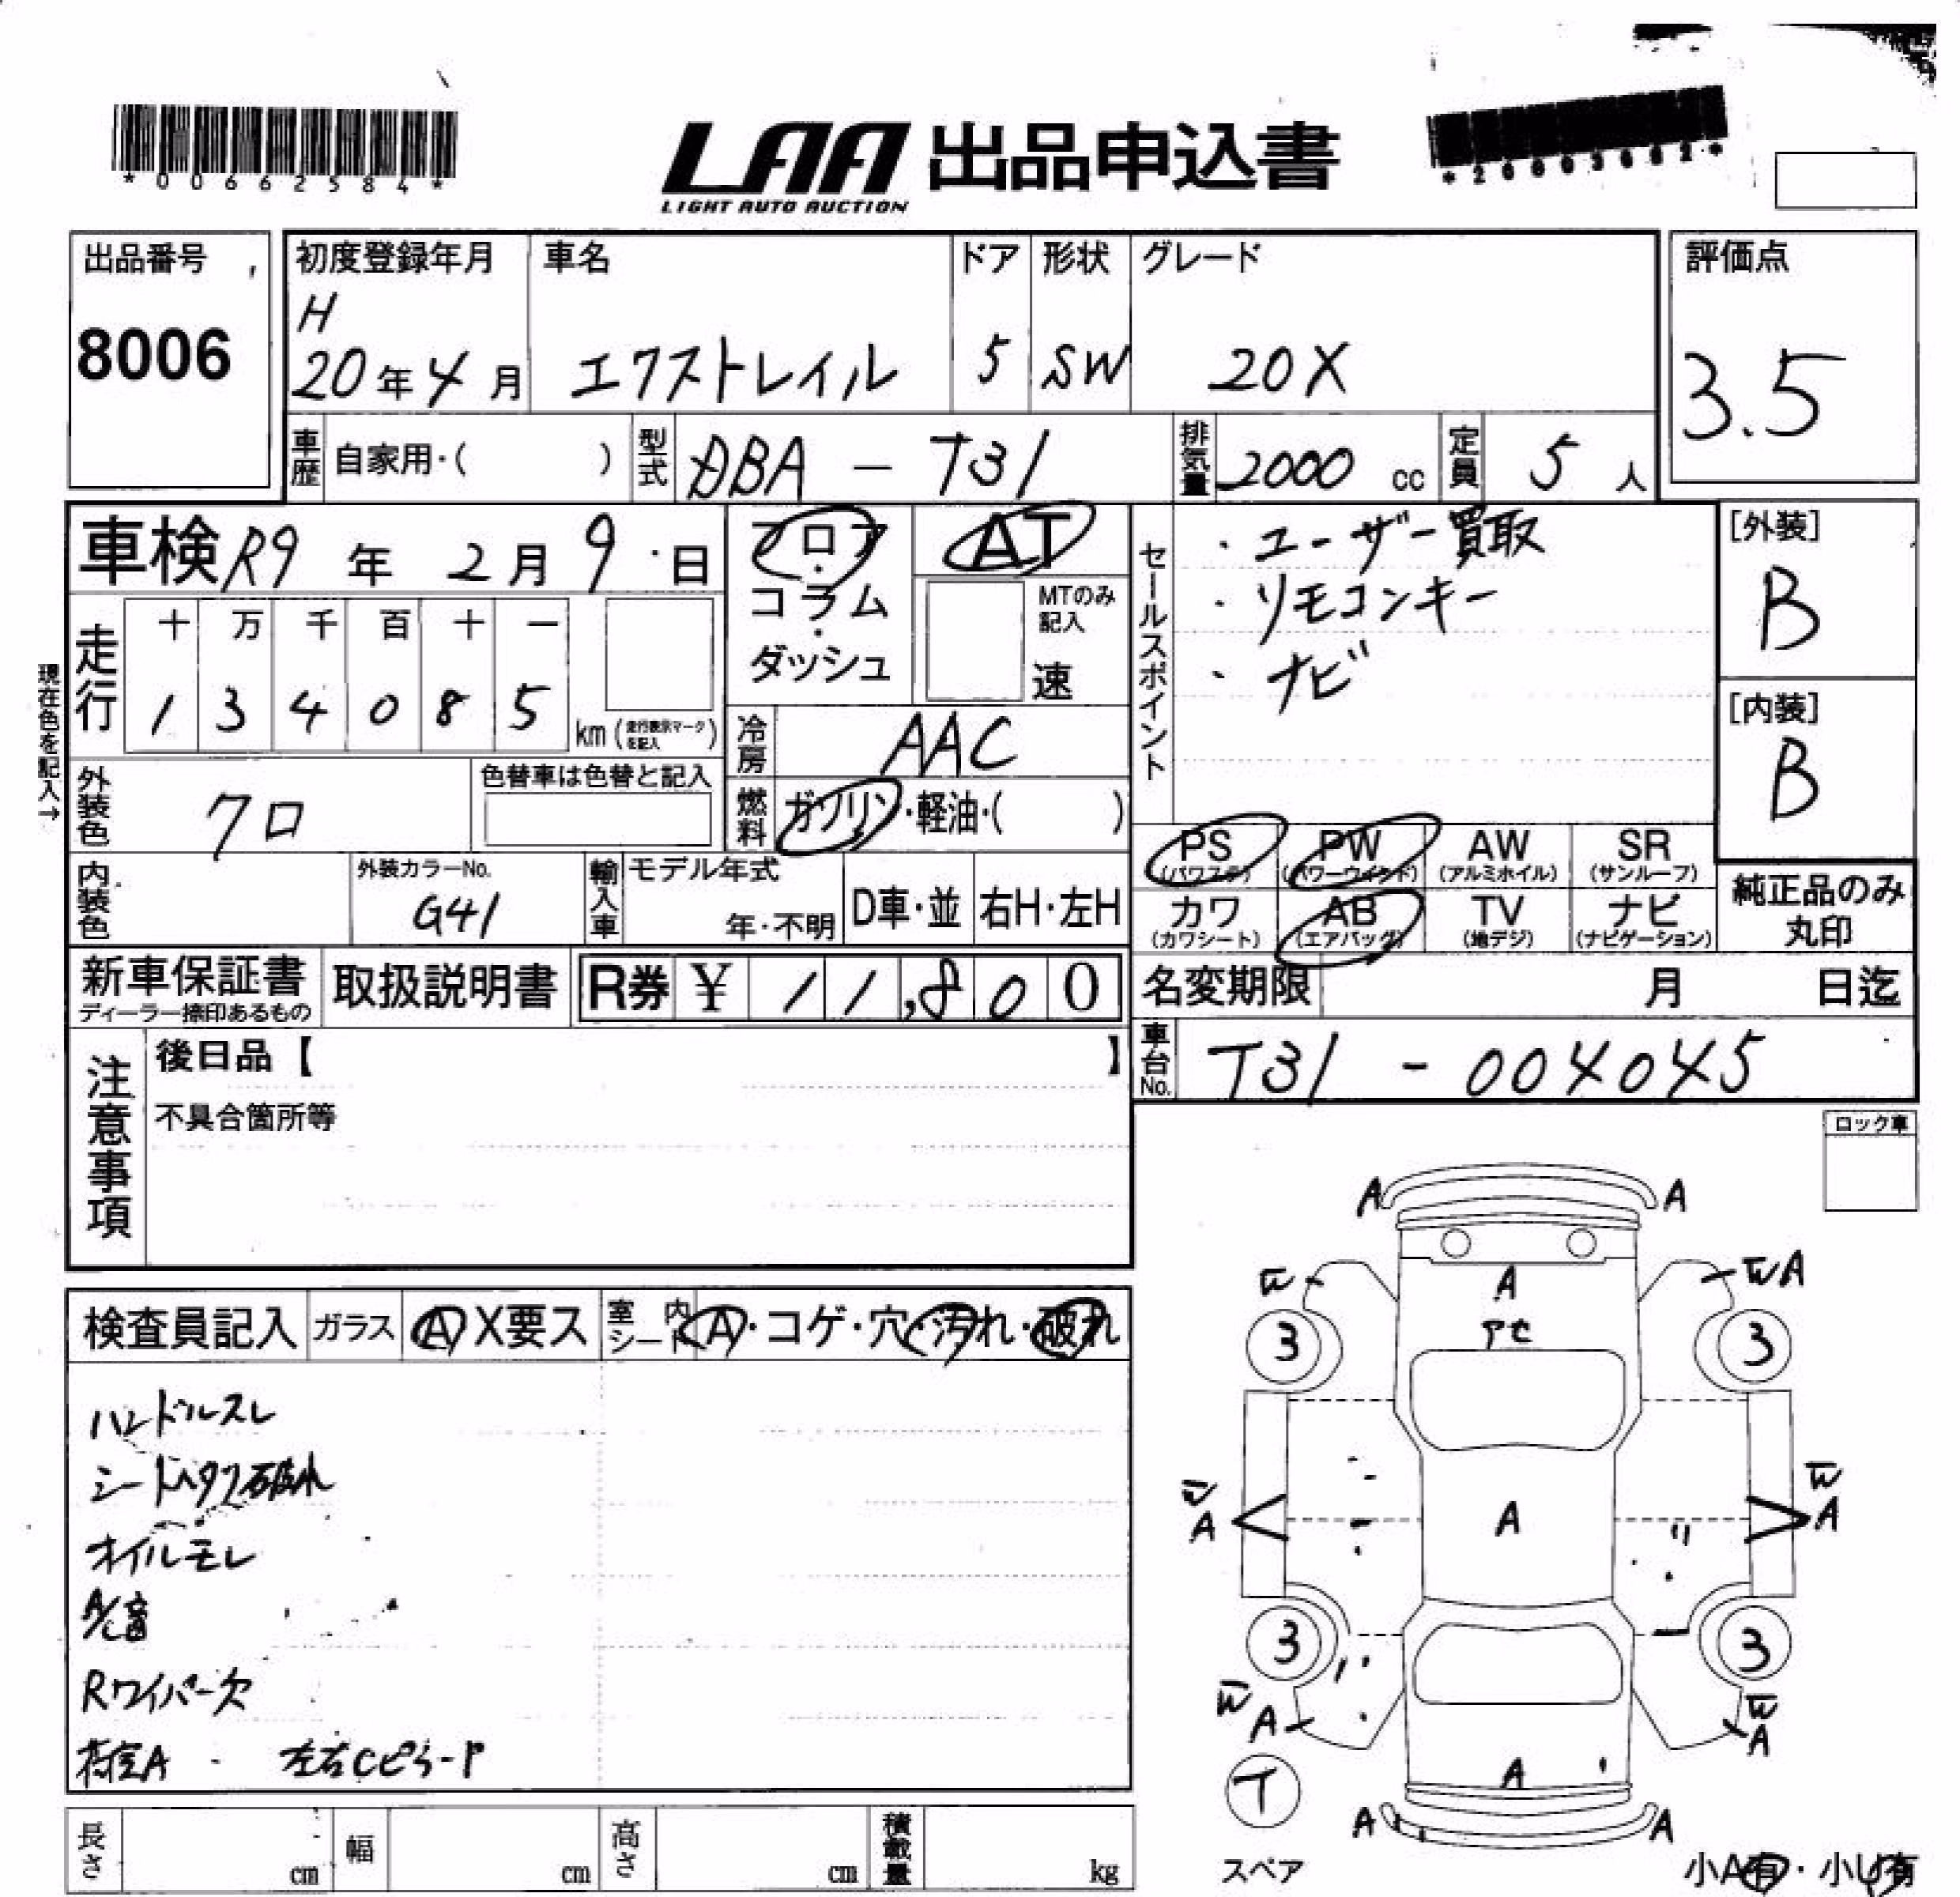 *00662584*
LAA 出品申込書
LIGHT AUTO AUCTION
出品番号
8006
初度登録年月
H
20年4月
車名
エクストレイル
ドア
5
形状
SW
グレード
20X
評価点
3.5
車歴 自家用・( )
型式 DBA - T31
排気量 2000 cc
定員 5 人
車検 R9年 2月 9日
フロア・コラム・ダッシュ
AT
MTのみ記入
速
セールスポイント
・ユーザー買取
・リモコンキー
・ナビ
[外装]
B
[内装]
B
現在色を記入→
走行
十 万 千 百 十 一
1 3 4 0 8 5
km (走行表示マークを記入)
冷房 AAC
燃料 ガソリン・軽油・( )
外装色 クロ
色替車は色替と記入
内装色
外装カラーNo.
G41
輸入車
モデル年式
年・不明
D車・並
右H・左H
PS (パワステ)
PW (パワーウィンド)
AW (アルミホイル)
SR (サンルーフ)
カワ (カワシート)
AB (エアバッグ)
TV (地デジ)
ナビ (ナビゲーション)
純正品のみ丸印
新車保証書
ディーラー捺印あるもの
取扱説明書
R券 ¥ 11,800
名変期限 月 日迄
車台No. T31 - 004045
注意事項
後日品【 】
不具合箇所等
ロック車
検査員記入
ガラス
A X要ス
室内シート
A・コゲ・穴・汚れ・破れ
ハンドルスレ
シート破れ
オイルモレ
Rワイパー欠
A
左右Cピラー
長さ cm
幅 cm
高さ cm
積載量 kg
A A
W WA
A
3 3
W W
A A A
3 3
W W
A A
A
T
スペア
A A
小A有・小U有